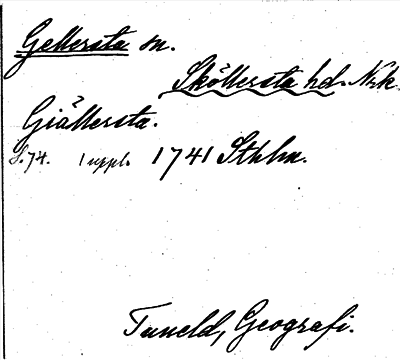 Gellersta sn.
Sköllersta hd. Nrk.
Giällersta.
S. 74. 1 uppl. 1741 Sthlm.
Tuneld, Geografi.